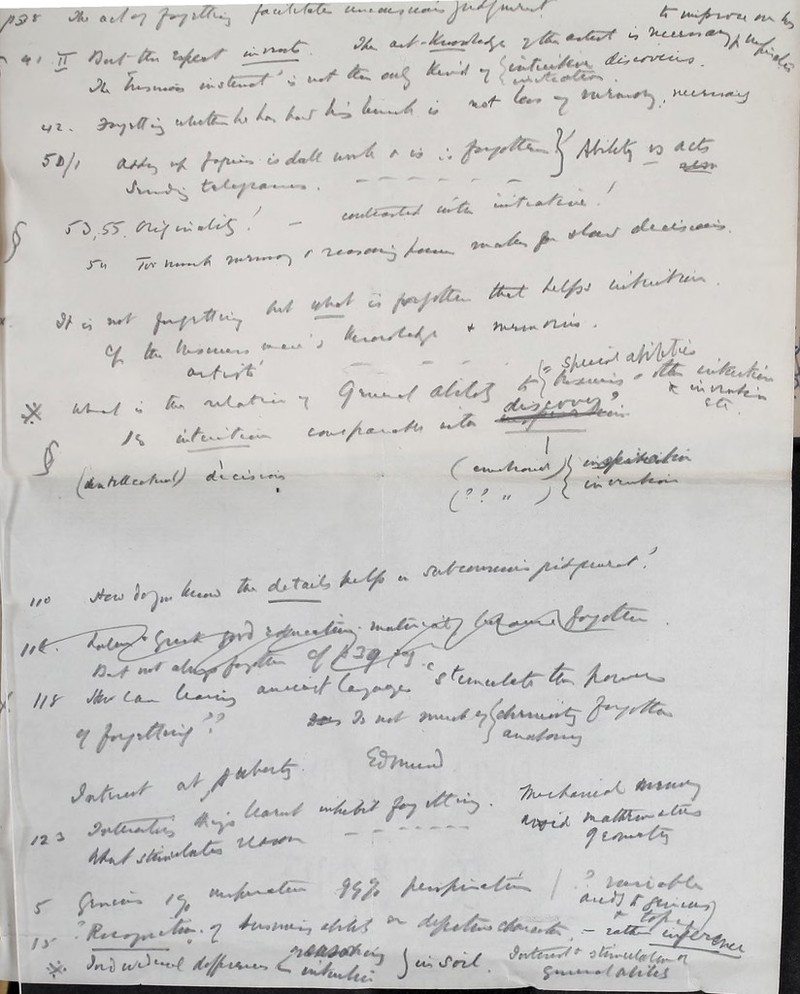 p38 The act of forgetting facilitates unconscious judgment! to improve on his
41 II But the expert invents. The art-knowledge of the artist is necessary
The business instinct' is not the only kind of { intuitive discoveries.
42. Forgetting whether he has had his lunch is not loss of memory, necessarily
50/1 adding up figures is dull work & is forgotten } Ability vs acts
Sending telegrams. - - - - - -
§ 53, 55. Originality! - contrasted with initiative!
54 Too much memory & reasoning power makes for slow decisions.
It is not forgetting but what is forgotten that helps intuition.
of the business man's knowledge & memories.
artists'
What is the relation of General ability to { special abilities
business & other intuition
& invention
etc.
Is intuition comparable with discovery?
§ (intellectual) decision (emotional) } inspiration
(? ? " ) { invention
110 How do you know the details help in subconscious judgment!
118. Latin & Greek good education. material because forgotten.
But not always forgotten cf p39
118 How can learning ancient languages stimulate the power
of forgetting?? Is not much of { chemistry forgotten
anatomy
Interest at puberty. Edmund
123 Interesting things learnt inhibit forgetting. Mechanical memory
What stimulates reason - - - - - - avoid mathematics
geometry
5 Genius 1% inspiration 99% perspiration / ? variable
15 ? Recognition of business ability or detective character, - rather inference
Individual differences in { reasoning
intuition } in soil. Interest & stimulation of
general ability